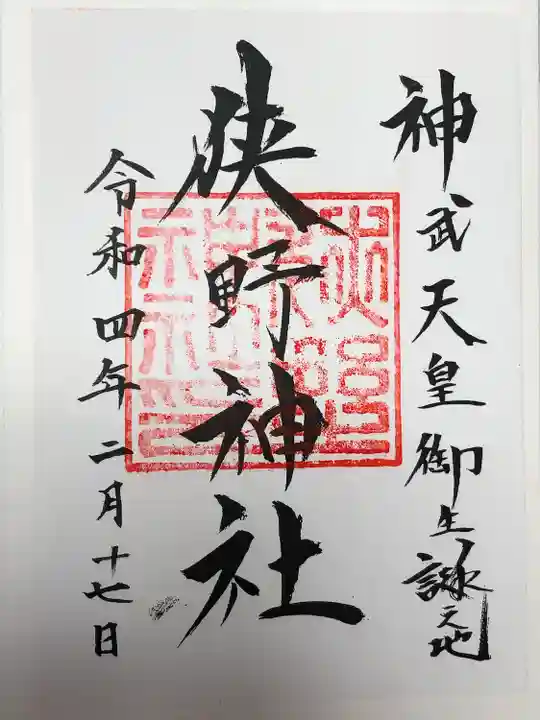 神武天皇御生誕之地
狭野神社
令和四年二月十七日